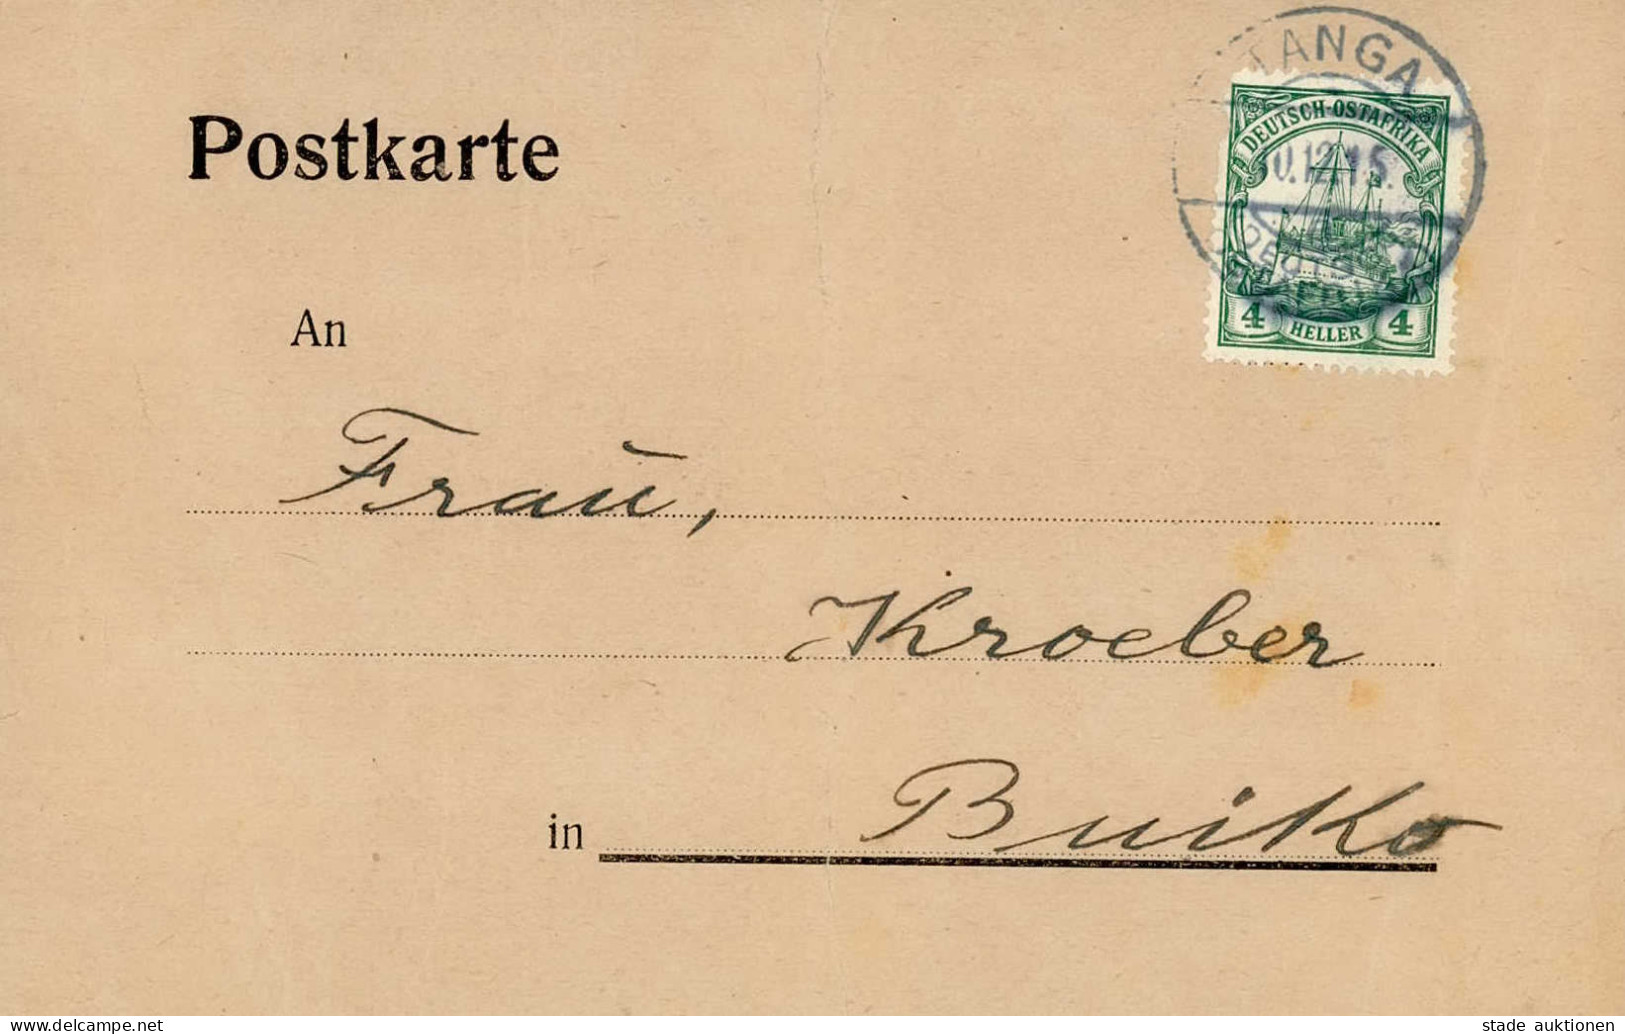 TANGA
DEUTSCH-OSTAFRIKA
0.12.15.
4 HELLER 4
Postkarte
An
Frau,
Kroeber
in Buiko
www.delcampe.net
stade auktionen